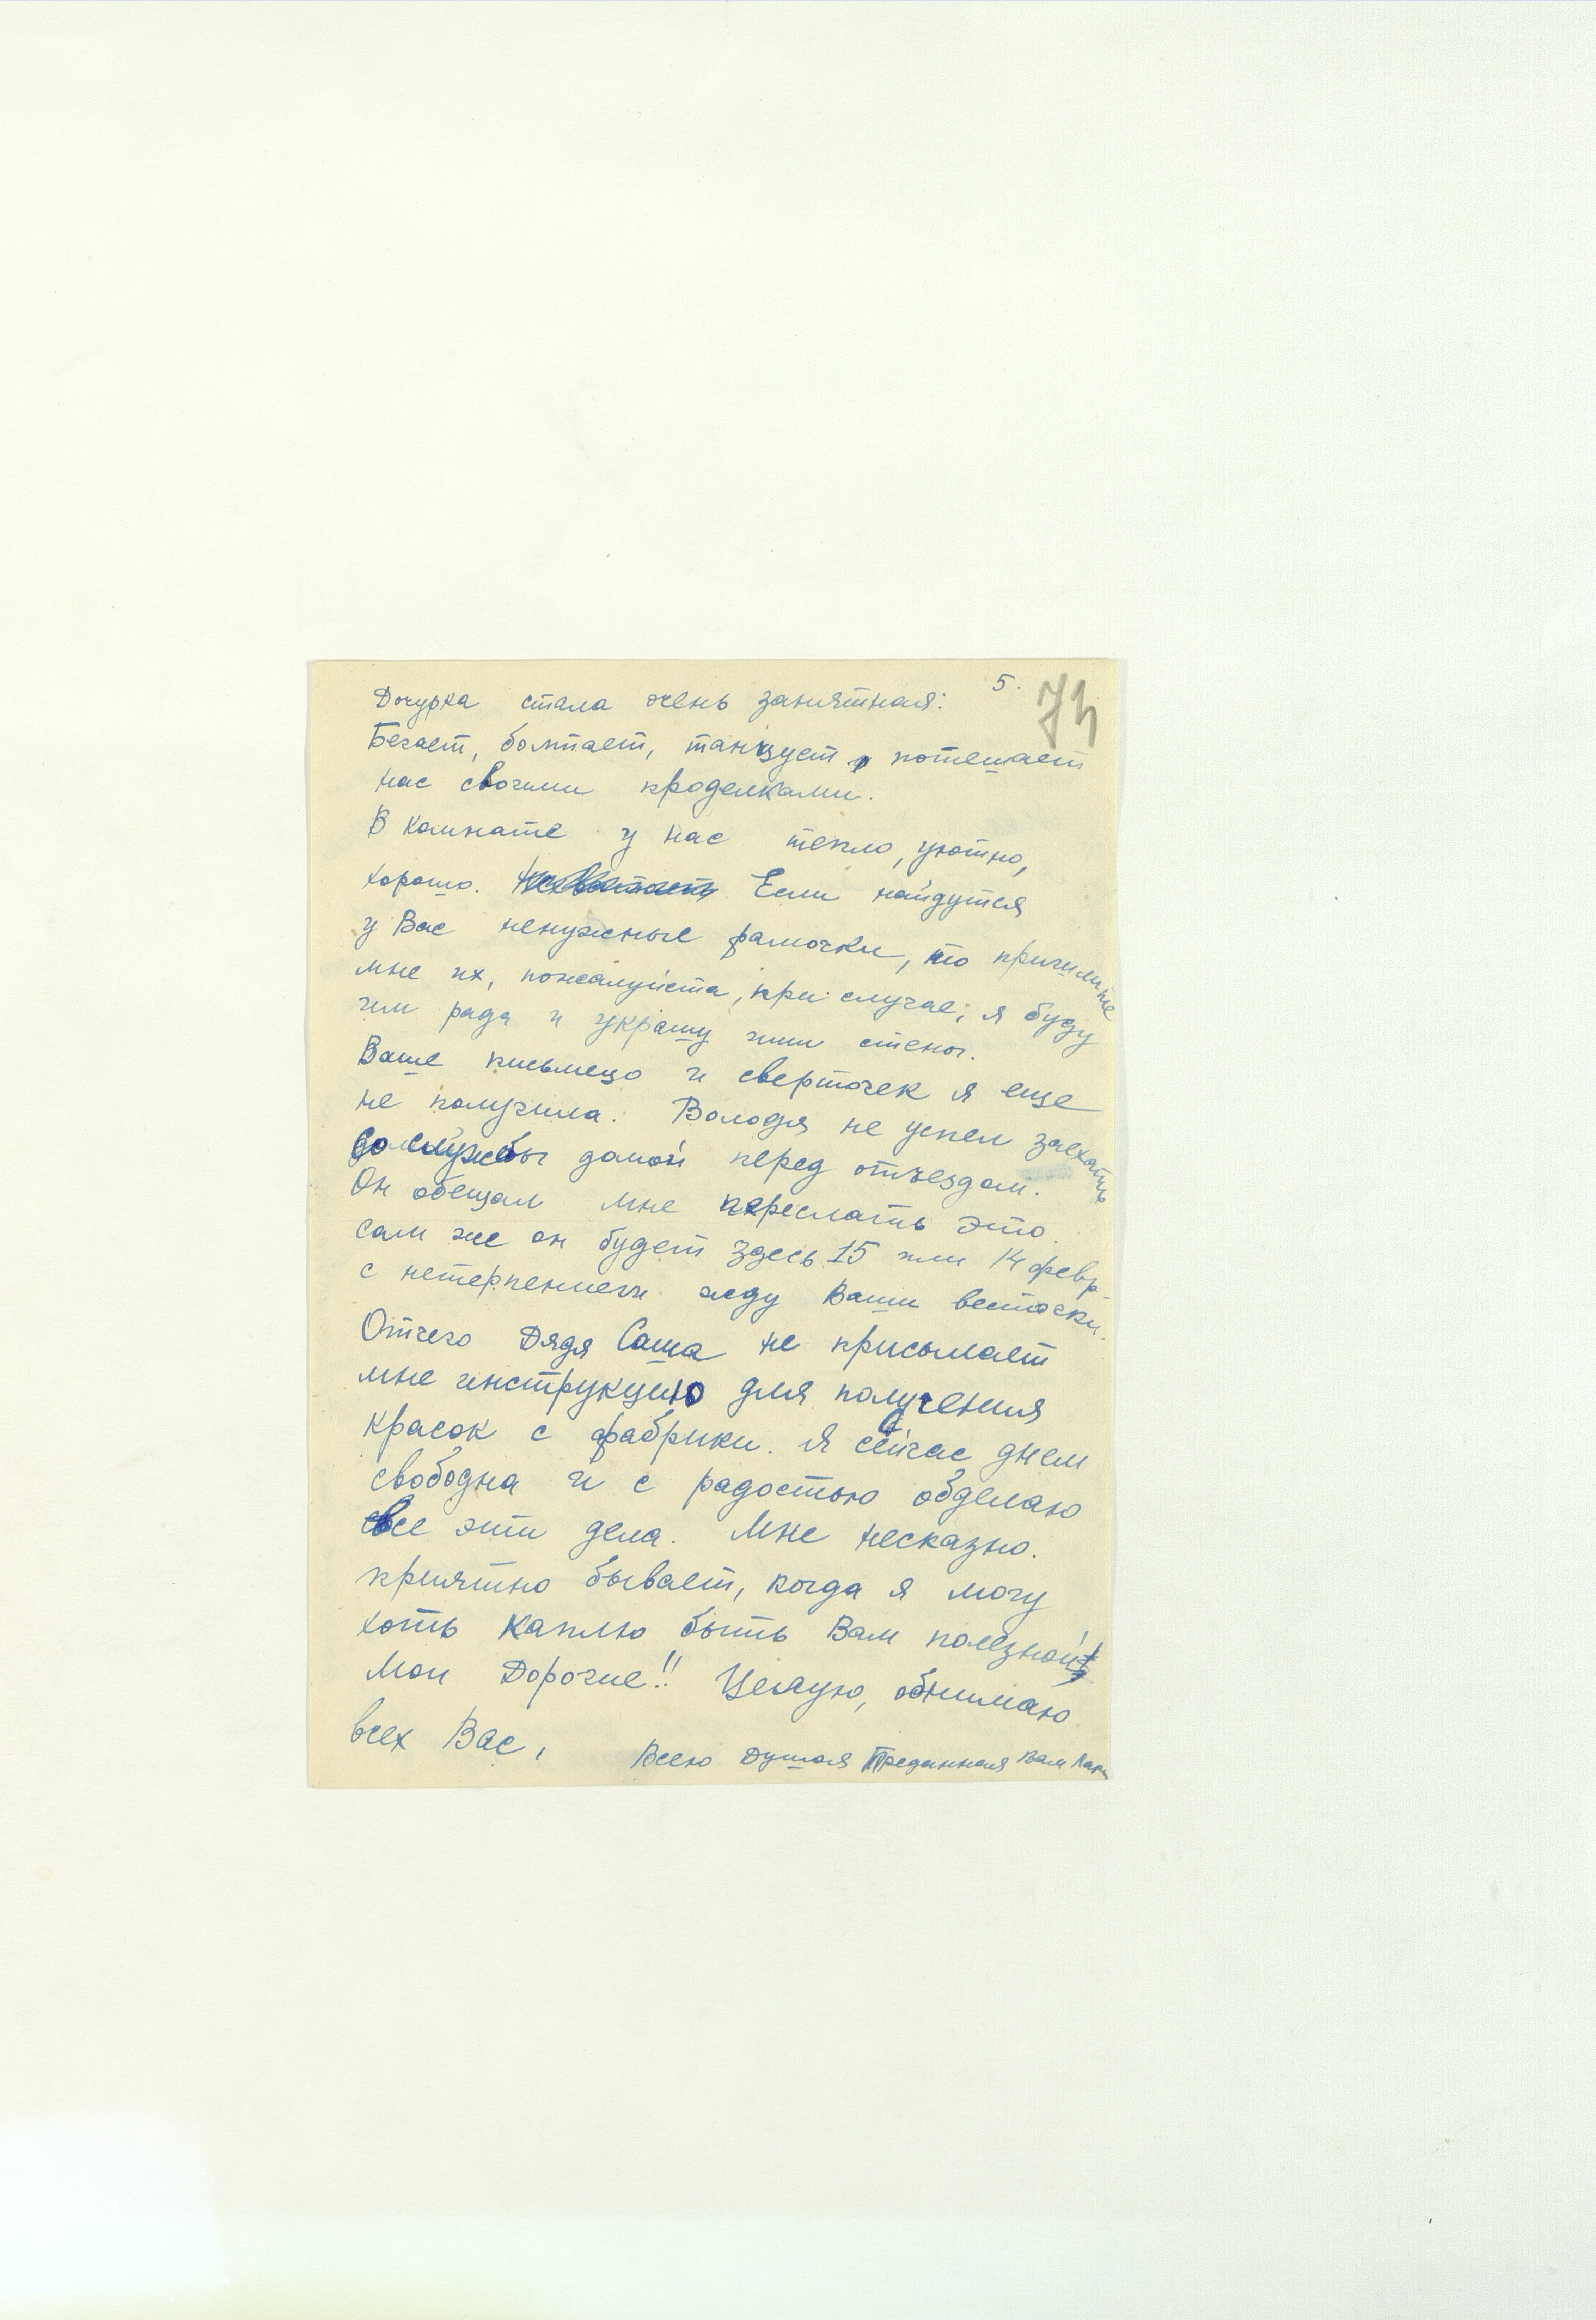 5.
74
Дочурка стала очень занятная:
Бегает, болтает, танцует, потешает
нас своими проделками.
В комнате у нас тепло, уютно,
хорошо. Не хватает Если найдутся
у Вас ненужные рамочки, то пришлите
мне их, пожалуйста, при случае; я буду
им рада и украшу ими стены.
Ваше письмецо и сверточек я еще
не получила. Володя не успел заехать
со службы домой перед отъездом.
Он обещал мне переслать это.
Сам же он будет здесь 15 или 14 февр.
с нетерпением жду Ваши весточки.
Отчего Дядя Саша не присылает
мне инструкцию для получения
красок с фабрики. Я сейчас днем
свободна и с радостью обделаю
все эти дела. Мне несказно.
приятно бывает, когда я могу
хоть каплю быть Вам полезной!
Мои Дорогие!! Целую, обнимаю
всех Вас,
Всею Душой Преданная Вам